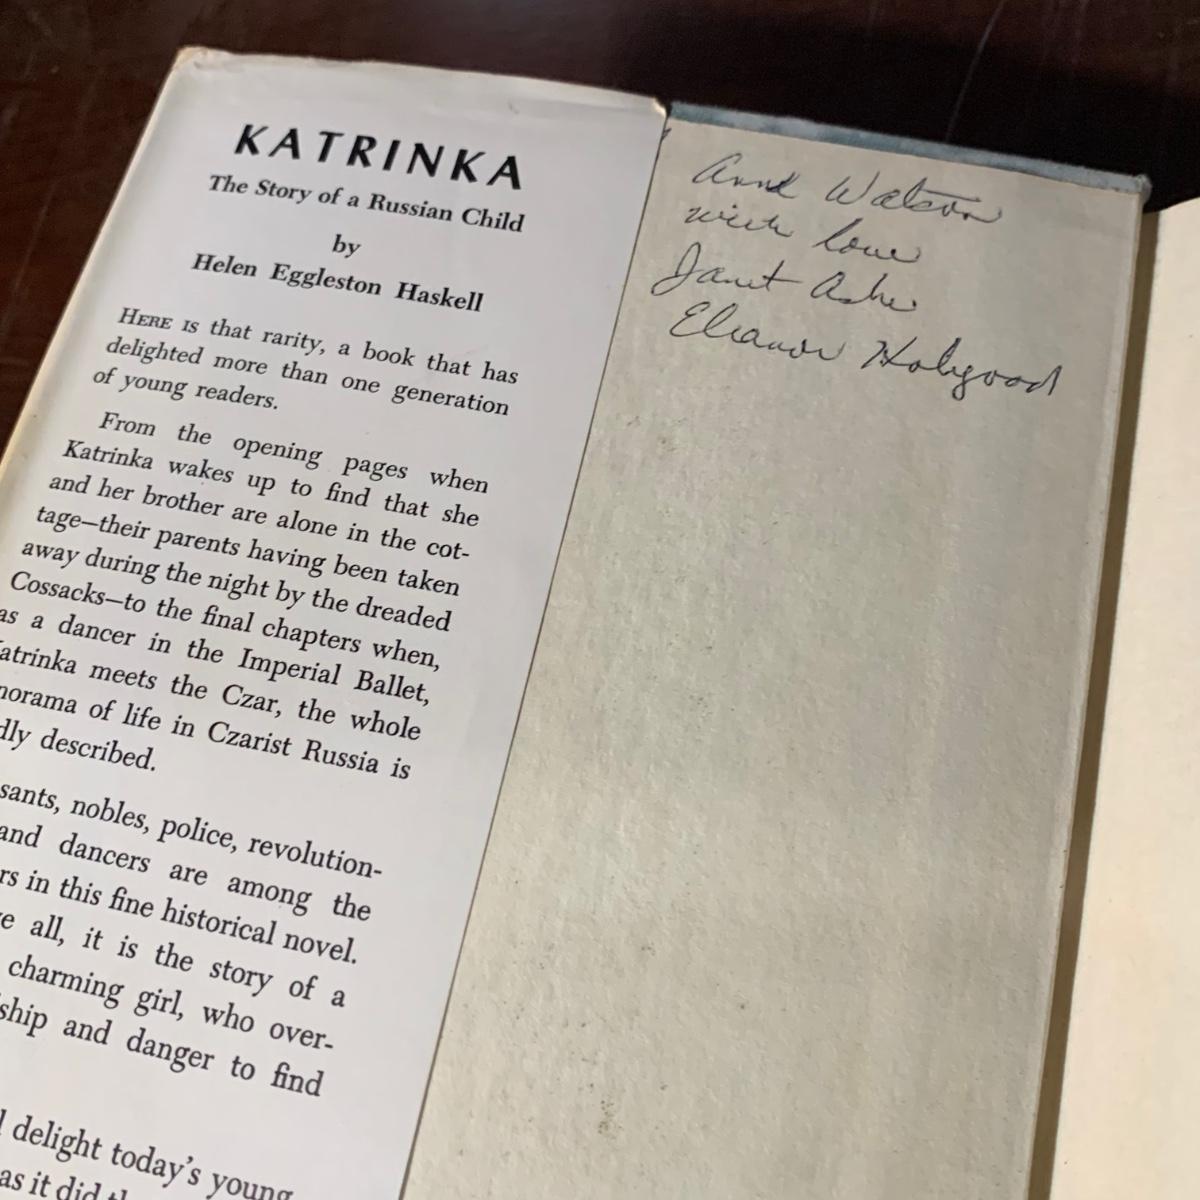 KATRINKA
The Story of a Russian Child
by
Helen Eggleston Haskell
HERE IS that rarity, a book that has
delighted more than one generation
of young readers.
From the opening pages when
Katrinka wakes up to find that she
and her brother are alone in the cot-
tage—their parents having been taken
away during the night by the dreaded
Cossacks—to the final chapters when,
as a dancer in the Imperial Ballet,
atrinka meets the Czar, the whole
norama of life in Czarist Russia is
dly described.
sants, nobles, police, revolution-
and dancers are among the
rs in this fine historical novel.
e all, it is the story of a
charming girl, who over-
ship and danger to find
delight today's young
as it did
Anne Watson
with love
Janet Ashe
Eleanor Hobgood